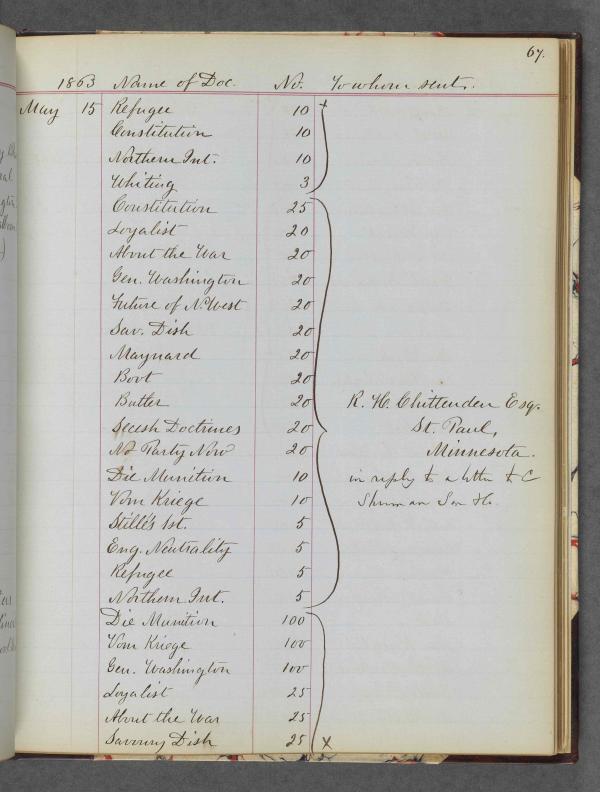 67.
1863 Name of Doc. No. To whom sent.
May 15 Refugee 10 x
Constitution 10
Northern Int. 10
Whiting 3
Constitution 25
Loyalist 20
About the War 20
Gen. Washington 20
Future of N. West 20
Sav. Dish 20
Maynard 20
Boot 20
Butler 20 R. H. Chittenden Esq.
Secesh Doctrines 20 St. Paul,
No Party Now 20 Minnesota.
Die Munition 10 in reply to a letter to C
Vom Kriege 10
Stillé's 1st. 5
Eng. Neutrality 5
Refugee 5
Northern Int. 5
Die Munition 100
Vom Kriege 100
Gen. Washington 100
Loyalist 25
About the War 25
Savoury Dish 25 x